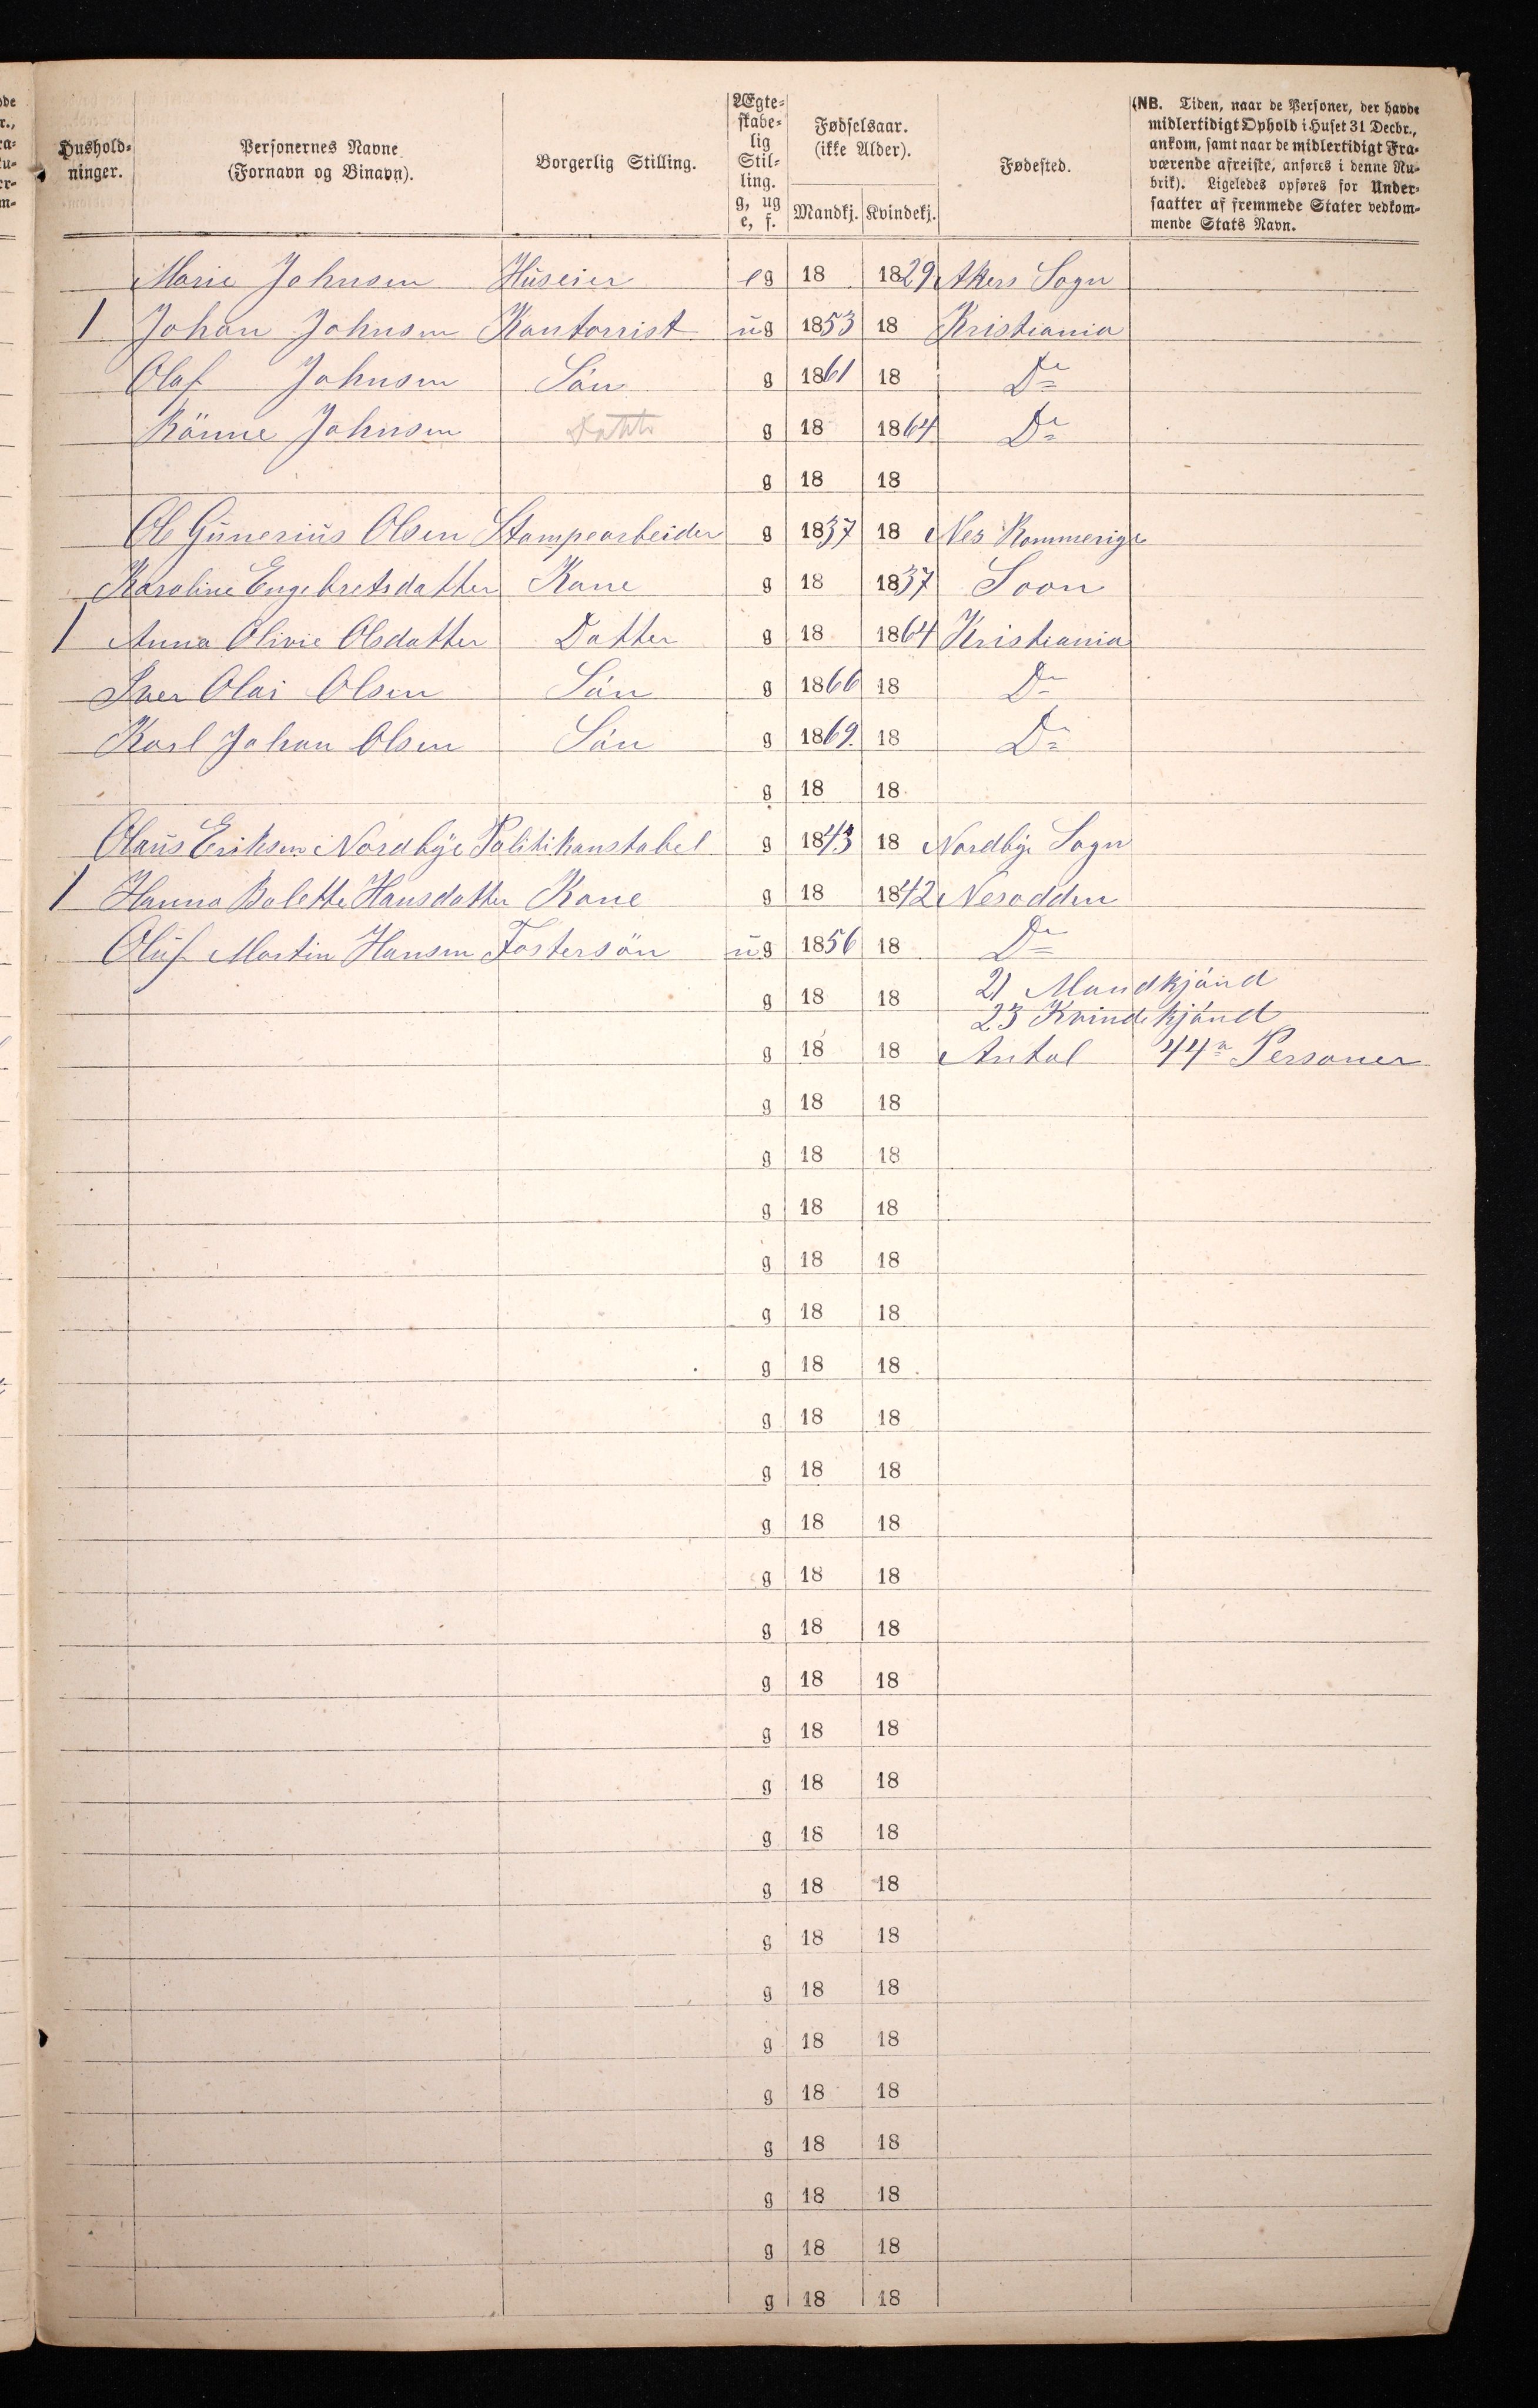 Hushold-
ninger.
Personernes Navne
(Fornavn og Binavn).
Borgerlig Stilling.
Ægte-
skabe-
lig
Stil-
ling.
g, ug
e, f.
Fødselsaar.
(ikke Alder).
Mandkj. Kvindekj.
Fødested.
(NB. Tiden, naar de Personer, der havde
midlertidigt Ophold i Huset 31 Decbr.,
ankom, samt naar de midlertidigt Fra-
værende afreiste, anføres i denne Ru-
brik). Ligeledes opføres for Under-
saatter af fremmede Stater vedkom-
mende Stats Navn.
Marie Johnsen Huseier eg 18 1829 Akers Sogn
1 Johan Johnsen Kontorrist ug 1853 18 Kristiania
Olaf Johnsen Sön g 1861 18 Do
Rönne Johnsen Datter g 18 1864 Do
g 18 18
Ole Gunerius Olsen Stampearbeider g 1837 18 Nes Rommerige
Karoline Engebretsdatter Kone g 18 1837 Soon
1 Anna Olivie Olsdatter Datter g 18 1864 Kristiania
Iver Olai Olsen Sön g 1866 18 Do
Karl Johan Olsen Sön g 1869. 18 Do
g 18 18
Olaus Eriksen Nordbye Politikonstabel g 1843 18 Nordbye Sogn
1 Hanna Bolette Hansdatter Kone g 18 1842 Nesodden
Oluf Martin Hansen Fostersön ug 1856 18 Do
g 18 18 21 Mandkjönd
23 Kvindekjönd
g 18 18 Antal 44 Personer
g 18 18
g 18 18
g 18 18
g 18 18
g 18 18
g 18 18
g 18 18
g 18 18
g 18 18
g 18 18
g 18 18
g 18 18
g 18 18
g 18 18
g 18 18
g 18 18
g 18 18
g 18 18
g 18 18
g 18 18
g 18 18
g 18 18
g 18 18
g 18 18